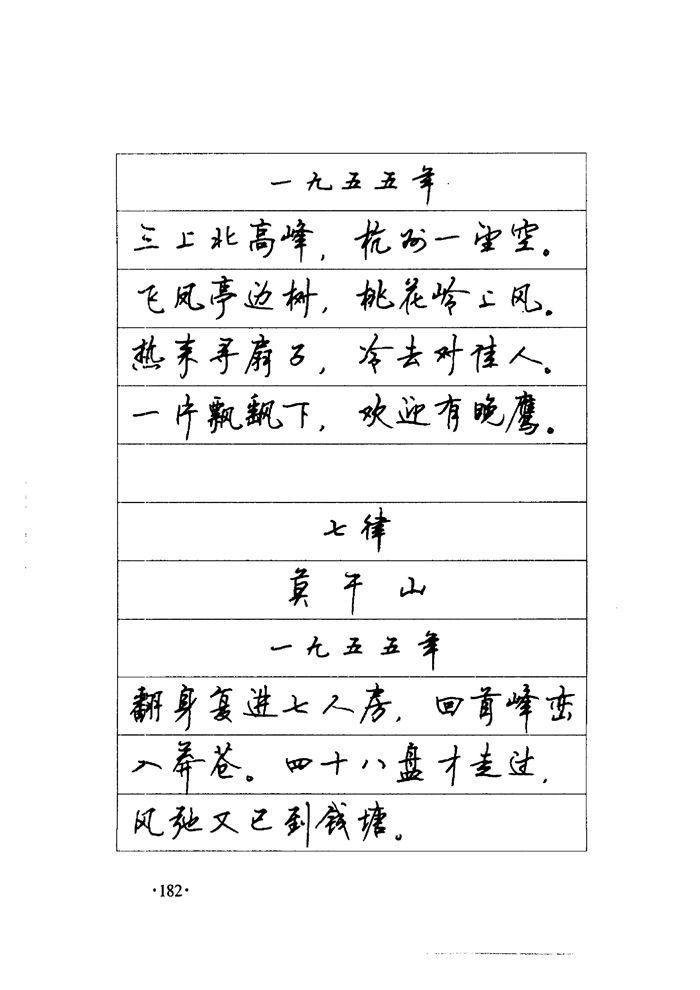 一九五五年
三上北高峰，杭州一望空。
飞凤亭边树，桃花岭上风。
热来寻扇子，冷去对佳人。
一片飘飘下，欢迎有晚鹰。
七律
莫干山
一九五五年
翻身复进七人房，回首峰峦
入莽苍。四十八盘才走过，
风驰又已到钱塘。
·182·